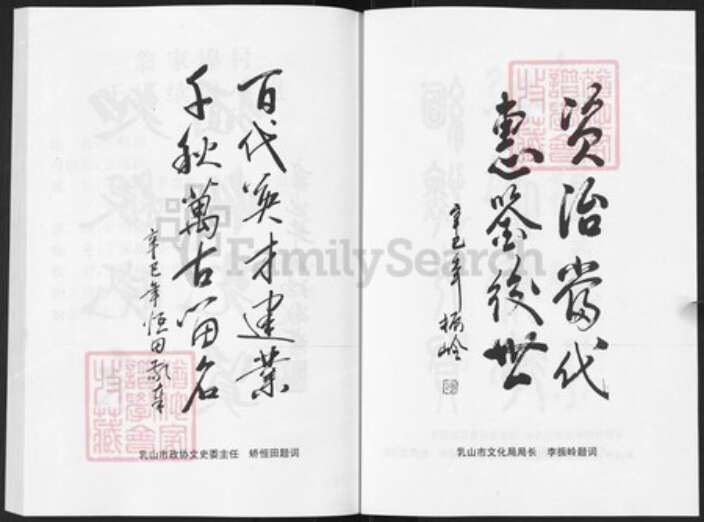 资治當代
惠鉴後世
辛巳年 振岭
乳山市文化局局长 李振岭题词
百代英才建業
千秋萬古留名
辛巳年恒田敬
乳山市政协文史委主任 矫恒田题词
FamilySearch